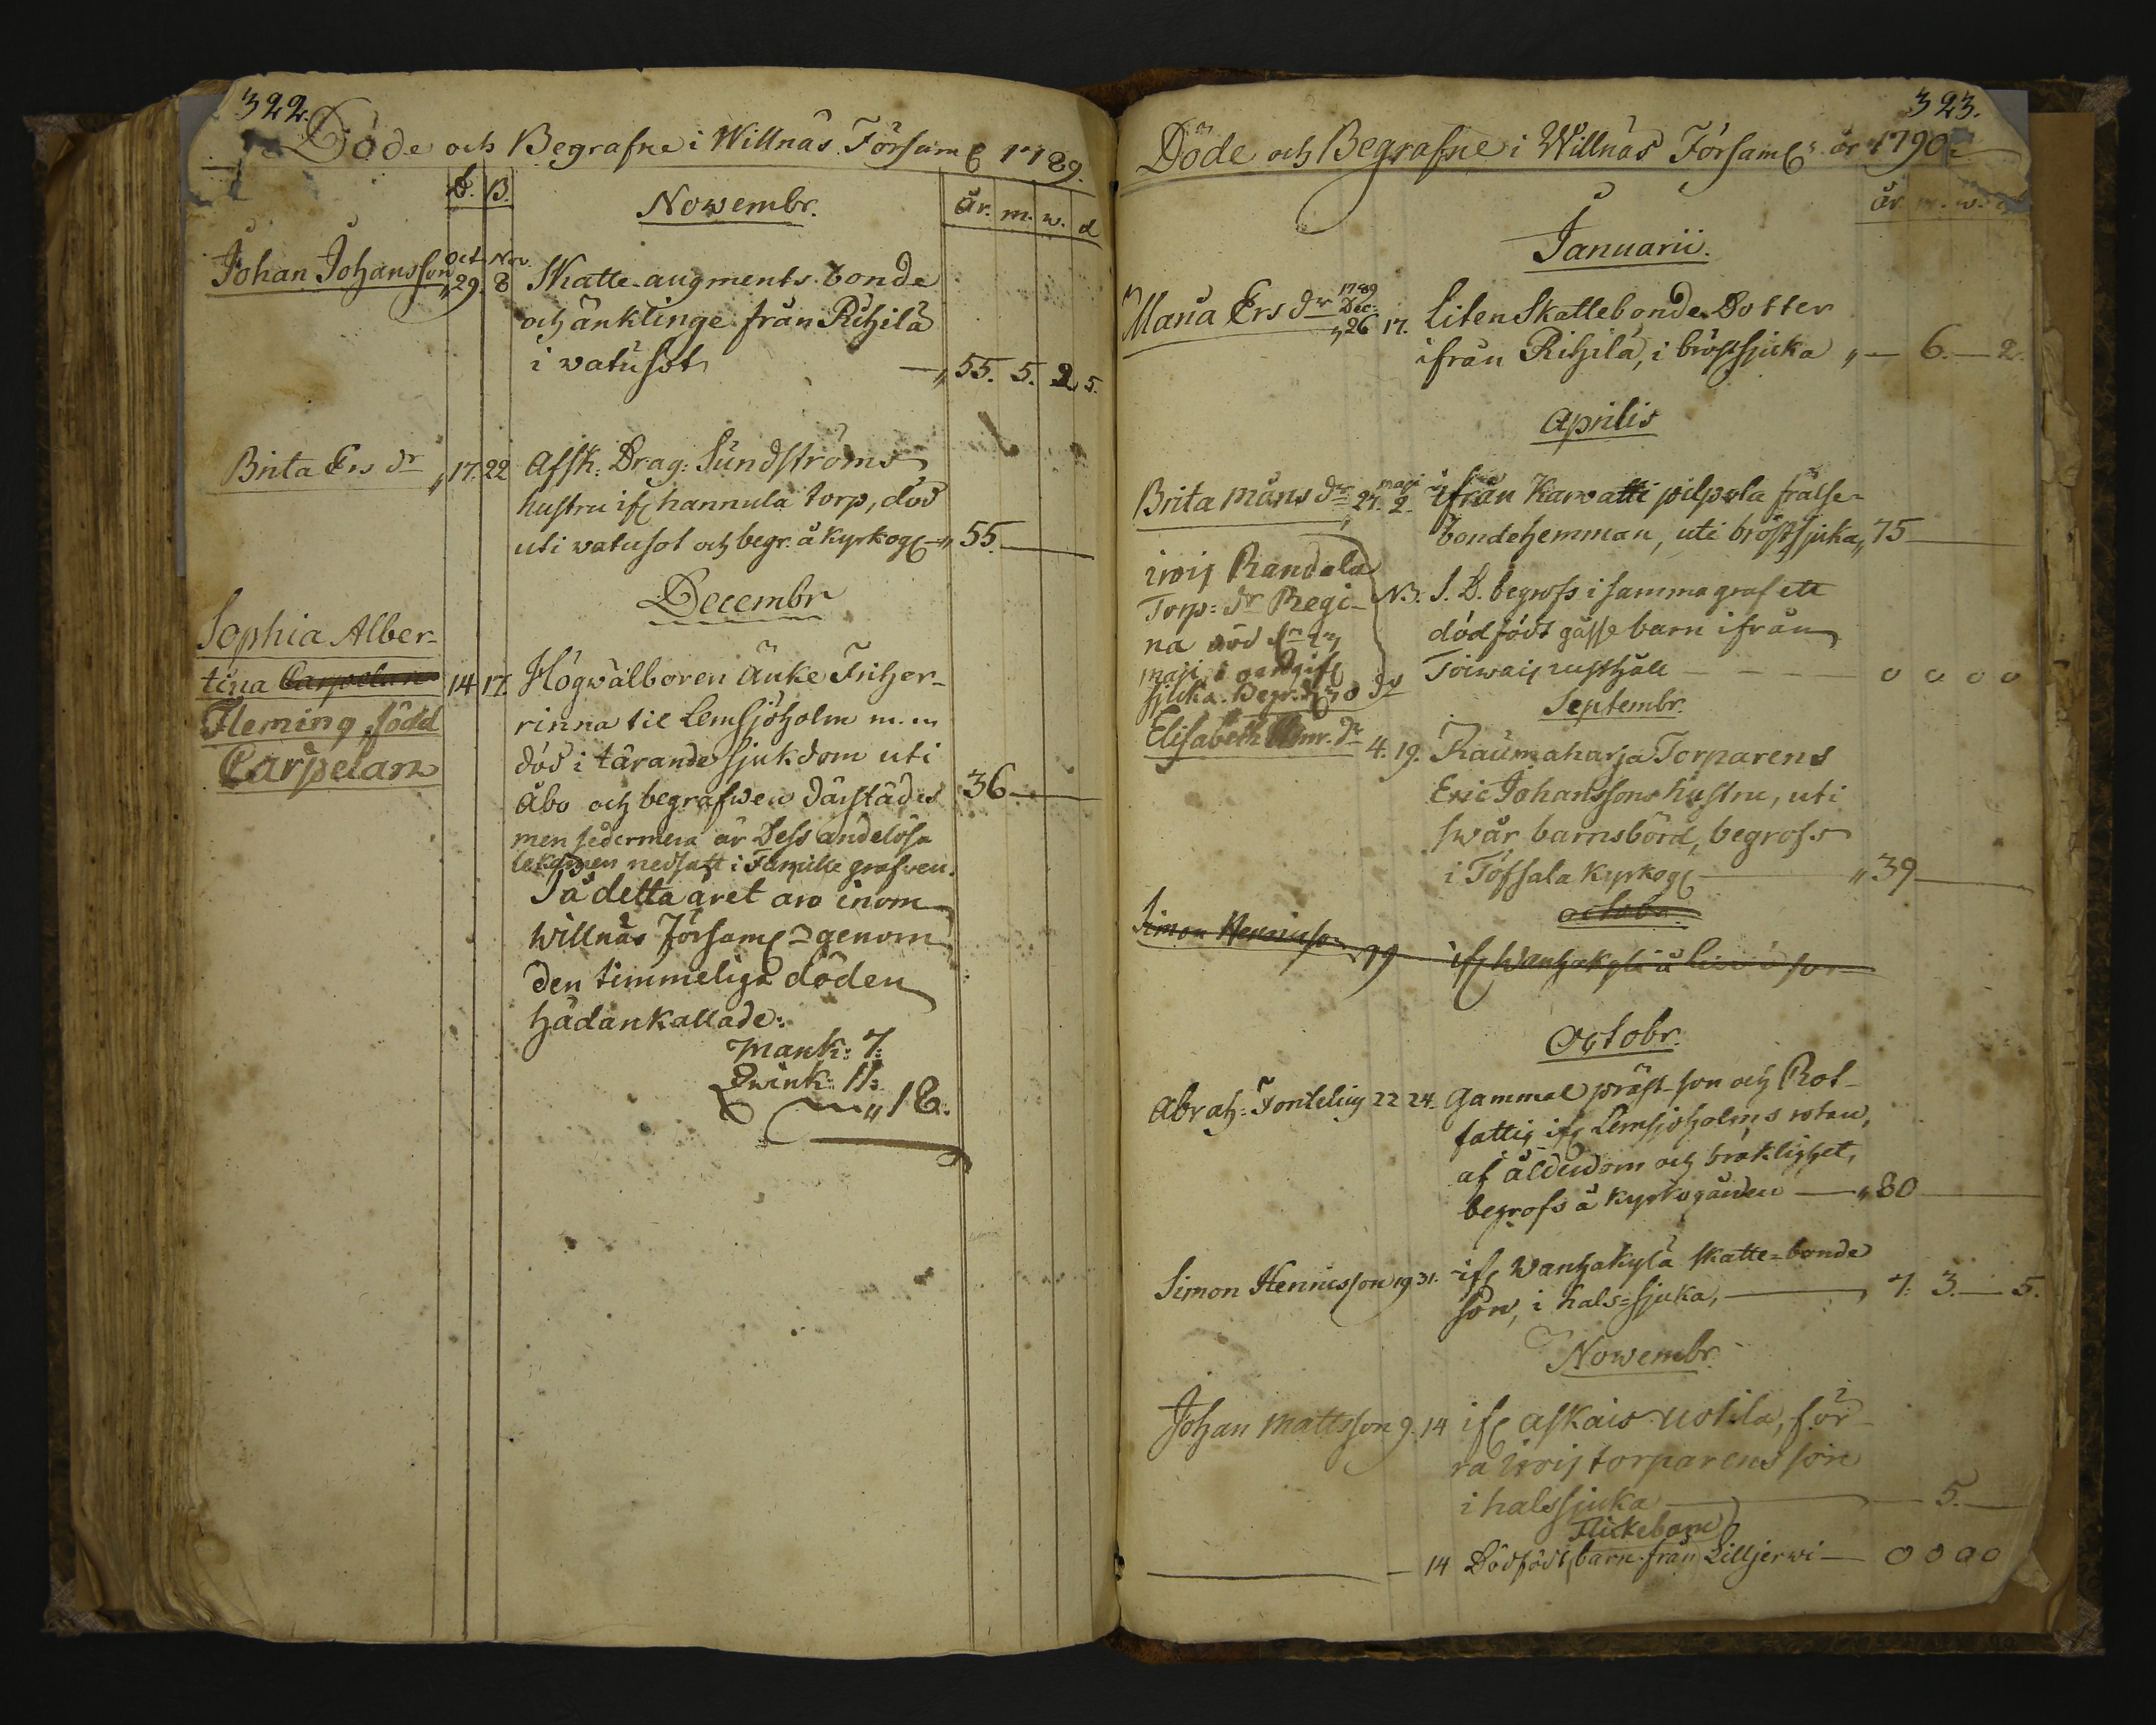 322.
Döde och Begrafne i Willnäs Församl 1789.
D. B.
Nowembr.
år. m. w. d
Johan Johansson Oct 29. Nov. 8 Skatte-augments-bonde
och änklinge från Rihilä
i watusot — 55. 5. 2 5.
Brita Ers dr 17. 22 Afsk: Drag: Sundströms
hustru ifr hannula torp, död
uti watusot och begr. å kyrkog — 55.
Decembr
Sophia Alber-
tina Carpelan 14 17. Högwälboren Änke Friher-
Fleming, född
Carpelan
rinna til Lemsjöholm m.m
död i tärande sjukdom uti
Åbo och begrafwen därstädes 36
men sedermera är Dess andelösa
lekamen nedsatt i Famille grafwen.
På detta året äro inom
Willnäs församl genom
den timmeliga döden
hädankallade:
Mank: 7:
Qwink: 11:
18.
323.
Döde och Begrafne i Willnäs Församl: år 1790.
år. m. w. d
Januarii.
Maria Ers dr 1789 Dec: 26 17. Liten Skattebonde Dotter
ifrån Rihilä, i bröstsjuka — 6. — 2.
Aprilis
Brita Måns dr 24. maji 2. ifrån Karwatti pilpola frälse-
bondehemman, uti bröstsjuka 75
irwij Randala
Torp: dr Regi-
na död
maji i
sjuka. Begr. d 8 do
NB. S. D. begrofs i samma graf ett
dödfödt gosse barn ifrån
Toiwais rusthåll — 0 0 0 0
Septembr.
Elisabeth dr 4. 19. Raumaharja Torparens
Eric Johanssons hustru, uti
swår barnsbörd, begrofs
i Töfsala kyrkog — 39
octobr.
Simon Hennicsson 19 ifr Wanhakylä
Octobr.
Abrah: Fontelius 22 24. Gammal präst-son och Rot-
fattig ifr Lemsjöholms rotan,
af ålderdom och bräklighet,
begrofs å kyrkogården — 80
Simon Hennicsson 19 31. ifr Wanhakylä skatte-bonde
son, i hals-sjuka, — 7. 3. — 5.
Nowembr.
Johan Mattsson 9. 14 ifr askais uotila, för-
ra irwij torparens son
i halssjuka — 5. —
Flickebarn
— 14 Dödfödt barn från Lilljerwi — 0 0 0 0